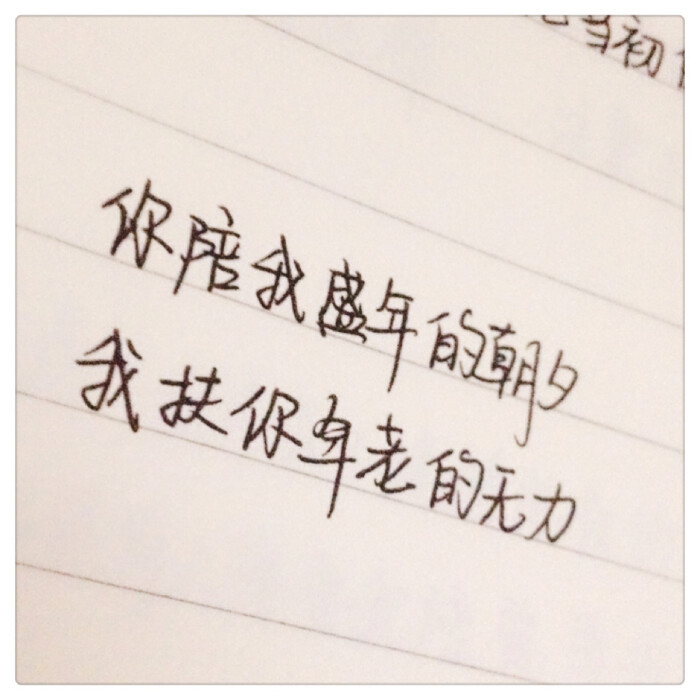 当初
你陪我盛年的朝夕
我扶你年老的无力